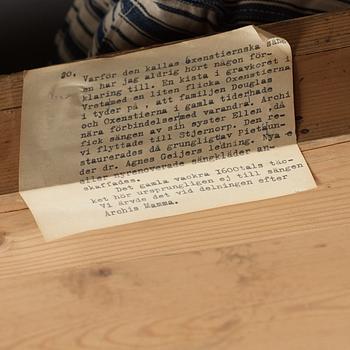 20. Varför den kallas Oxenstiernska säng
en har jag aldrig hört någon för-
klaring till. En kista i gravkoret i
Vreta med en liten flicka Oxenstierna
i tyder på, att familjen Douglas
och Oxenstierna i gamla tider haft
nära förbindelser med varandra. Archi
fick sängen av sin syster Ellen, då
vi flyttade till Stjernorp. Den re-
staurerades då grungligt av Pietaun-
der dr. Agnes Geijers ledning. Nya e
eller nyrenoverade sängkläder an-
skaffades.
Det gamla vackra 1600tals täc-
ket hör ursprungligen ej till sängen
Vi ärvde det vid delningen efter
Archis Mamma.